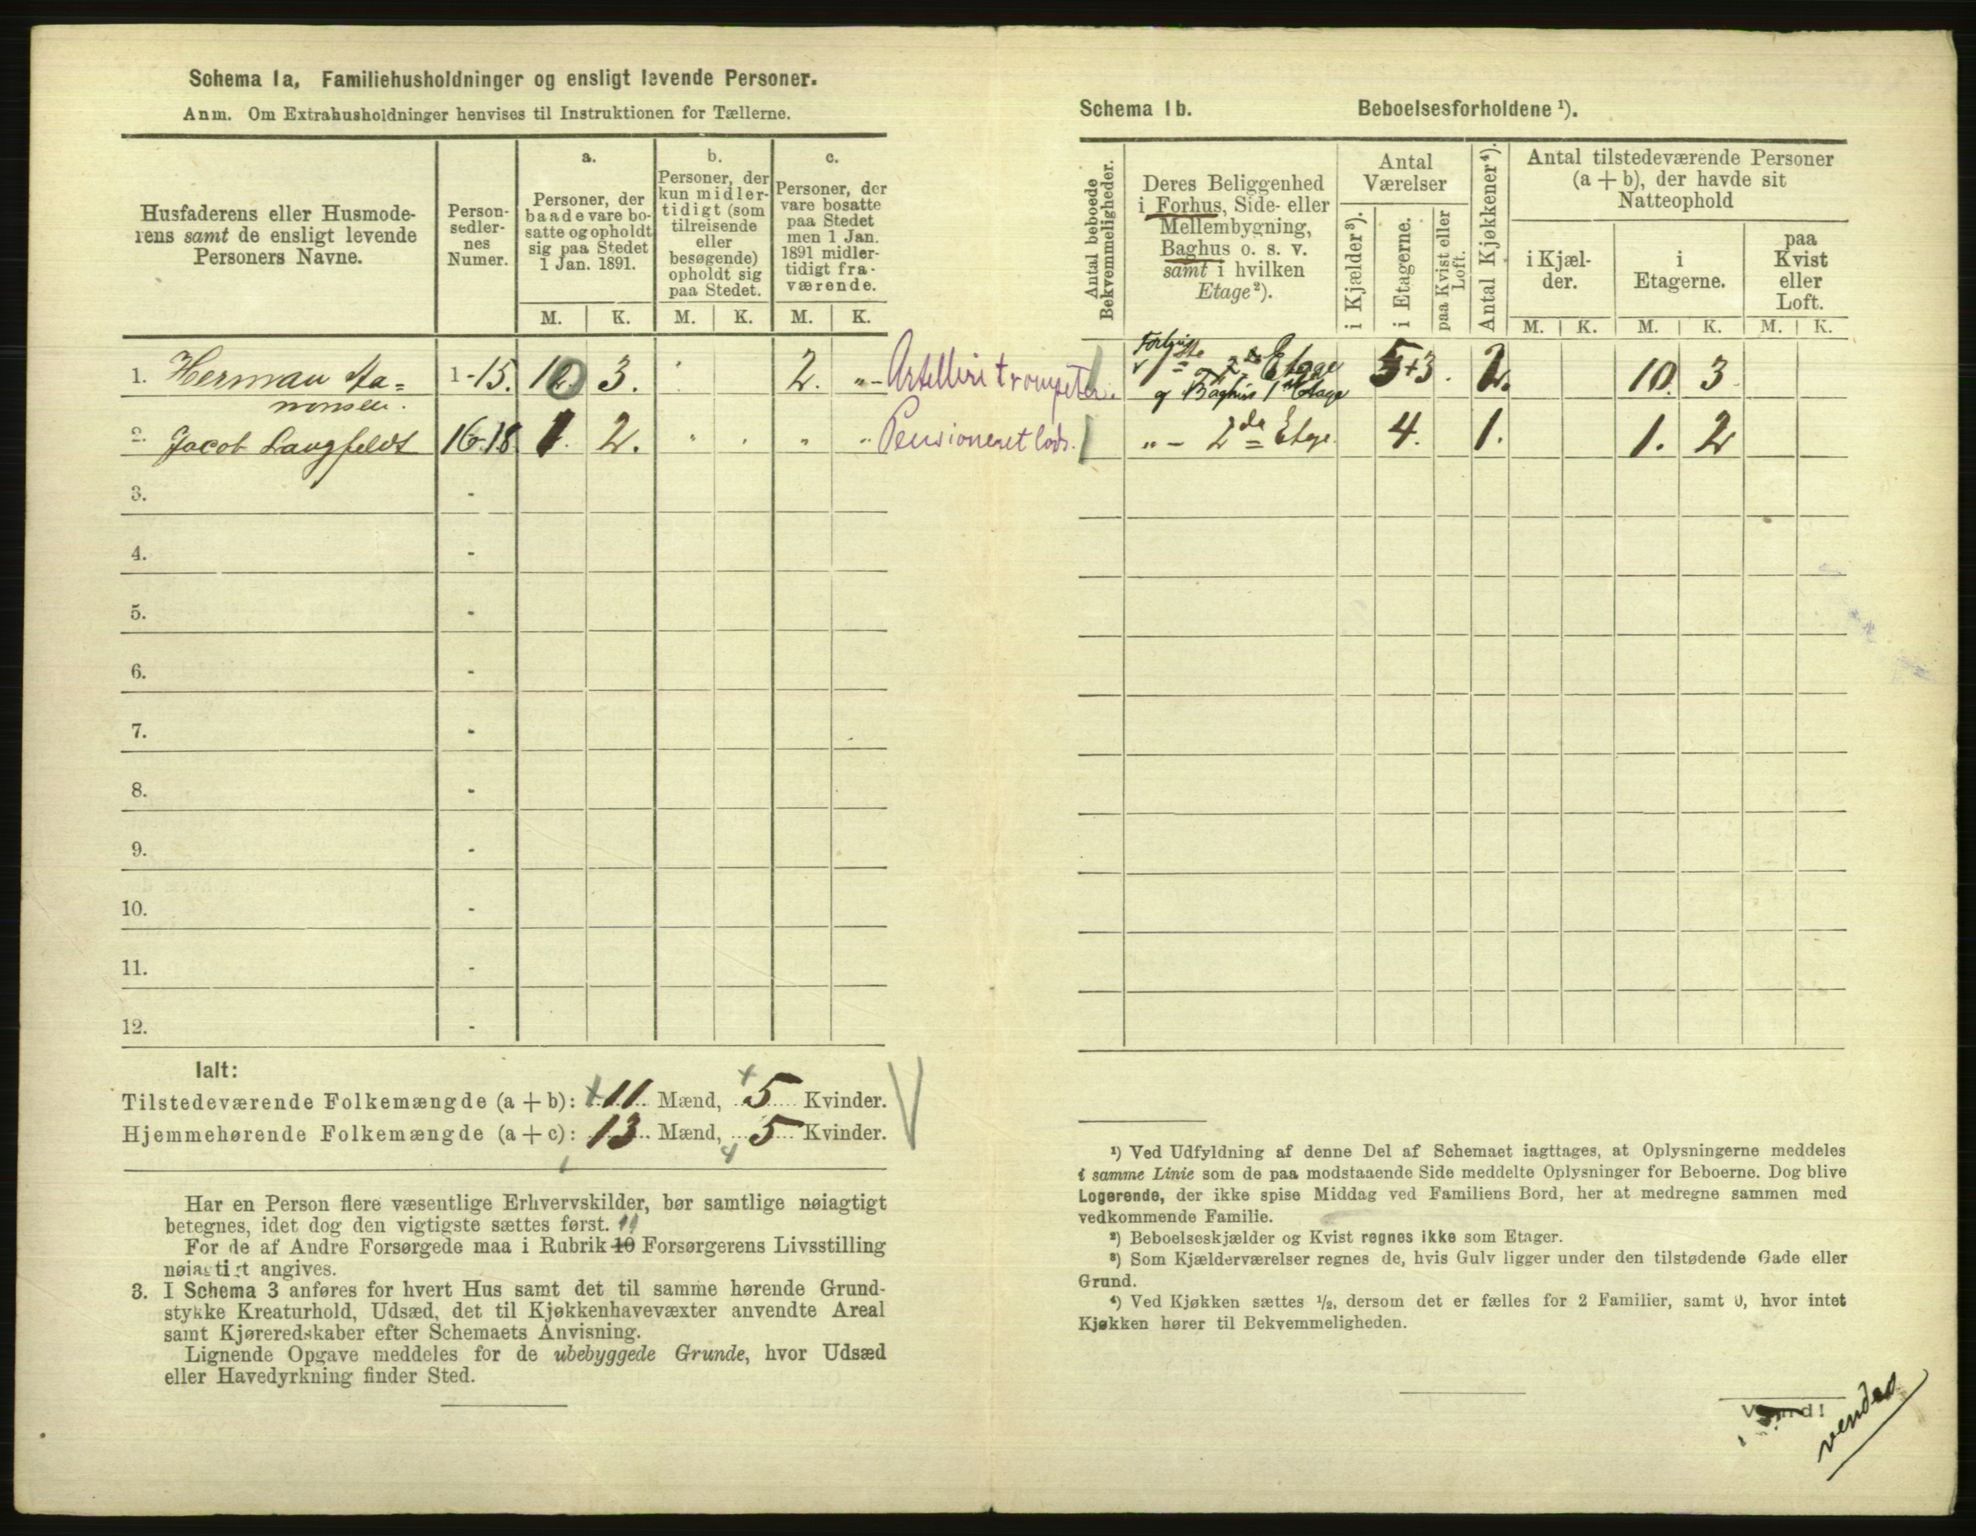 Schema 1a, Familiehusholdninger og ensligt levende Personer.
Anm. Om Extrahusholdninger henvises til Instruktionen for Tællerne.
Husfaderens eller Husmode-
rens samt de ensligt levende
Personers Navne.
Person-
sedler-
nes
Numer.
a.
Personer, der
baade vare bo-
satte og opholdt
sig paa Stedet
1 Jan. 1891.
b.
Personer, der
kun midler-
tidigt (som
tilreisende
eller
besøgende)
opholdt sig
paa Stedet.
c.
Personer, der
vare bosatte
paa Stedet
men 1 Jan.
1891 midler-
tidigt fra-
værende.
M. K. M. K. M. K.
1. Herman 1-15. 10 3. 2. „ Artilleritrompeter.
2. Jacob Langfeldt 16-18 1. 2. „ . „ „ Pensioneret lods.
3. -
4. -
5. -
6. -
7. -
8. -
9. -
10. -
11. -
12. -
Ialt:
Tilstedeværende Folkemængde (a + b): 11 Mænd, 5 Kvinder.
Hjemmehørende Folkemængde (a + c): 13 Mænd, 5 Kvinder.
Har en Person flere væsentlige Erhvervskilder, bør samtlige nøiagtigt
betegnes, idet dog den vigtigste sættes først. 11
For de af Andre Forsørgede maa i Rubrik 10 Forsørgerens Livsstilling
nøiagtigt angives.
3. I Schema 3 anføres for hvert Hus samt det til samme hørende Grund-
stykke Kreaturhold, Udsæd, det til Kjøkkenhavevæxter anvendte Areal
samt Kjøreredskaber efter Schemaets Anvisning.
Lignende Opgave meddeles for de ubebyggede Grunde, hvor Udsæd
eller Havedyrkning finder Sted.
Schema 1b. Beboelsesforholdene ¹).
Antal beboede
Bekvemmeligheder.
Deres Beliggenhed
i Forhus, Side- eller
Mellembygning,
Baghus o. s. v.
samt i hvilken
Etage²).
Antal
Værelser
i Kjælder³).
i Etagerne.
paa Kvist eller
Loft.
Antal Kjøkkener⁴).
Antal tilstedeværende Personer
(a + b), der havde sit
Natteophold
i Kjæl-
der.
i
Etagerne.
paa
Kvist
eller
Loft.
M. K. M. K. M. K.
Forhus
1ste og 2den Etage 5+3. 2. 10. 3
og Baghus 1ste Etage
„ - 2den Etage. 4. 1. 1. 2
¹) Ved Udfyldning af denne Del af Schemaet iagttages, at Oplysningerne meddeles
i samme Linie som de paa modstaaende Side meddelte Oplysninger for Beboerne. Dog blive
Logerende, der ikke spise Middag ved Familiens Bord, her at medregne sammen med
vedkommende Familie.
²) Beboelseskjælder og Kvist regnes ikke som Etager.
³) Som Kjælderværelser regnes de, hvis Gulv ligger under den tilstødende Gade eller
Grund.
⁴) Ved Kjøkken sættes ½, dersom det er fælles for 2 Familier, samt 0, hvor intet
Kjøkken hører til Bekvemmeligheden.
Vend!
vendes